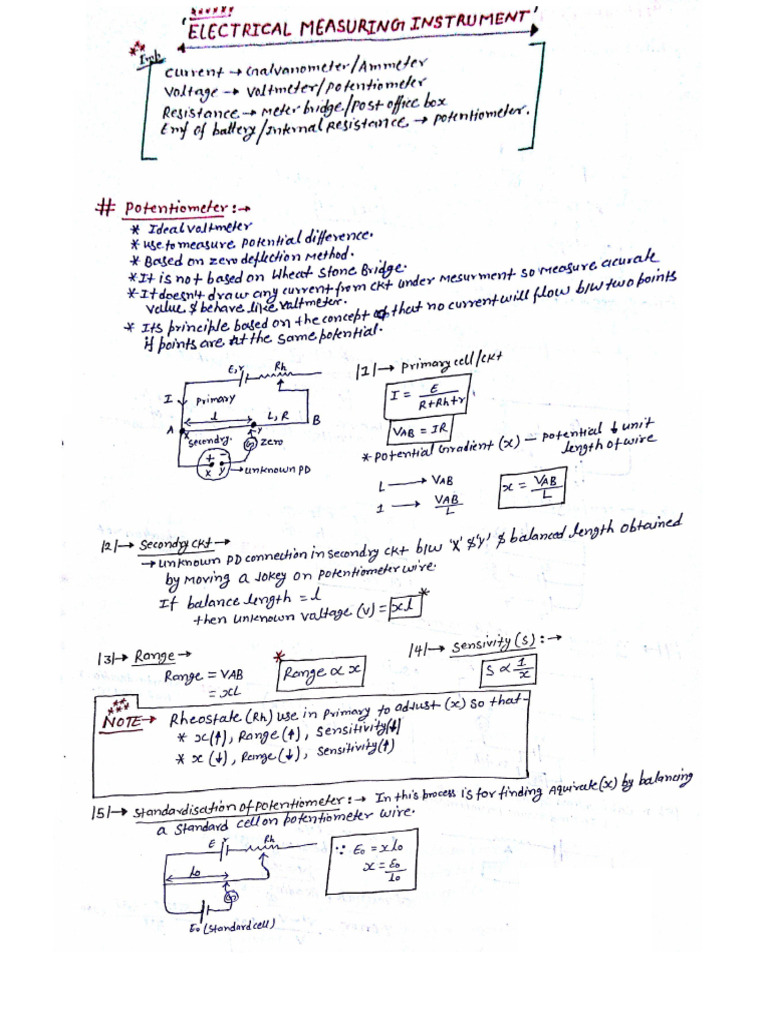 'ELECTRICAL MEASURING INSTRUMENT'
Imp.
Current → Galvanometer/Ammeter
Voltage → Voltmeter/Potentiometer
Resistance → Meter bridge/Post office box
Emf of battery/Internal Resistance → Potentiometer.
# Potentiometer:→
* Ideal voltmeter
* use to measure potential difference.
* Based on zero deflection Method.
* It is not based on Wheat Stone Bridge.
* It doesn't draw any current from ckt under Mesurment so measure acurate
value & behave like valtmeter.
* Its principle based on the concept of that no current will flow b/w two points
if points are at the same potential.
E,r
Rh
I
Primary
l
L, R
A
B
x
y
Secondry.
G
zero
+ -
x y
→unknown PD
|1|→ Primary cell/ckt
I = E/(R+Rh+r)
VAB = IR
* Potential Gradient (x) – potential ↓ unit
length of wire
L → VAB
1 → VAB/L
x = VAB/L
|2|→ Secondry ckt →
→ unknown PD connection in secondry ckt b/w 'x' & 'y' & balanced length obtained
by moving a Jokey on potentiometer wire.
If balance length = l
then unknown voltage (v) = xl *
|3|→ Range →
Range = VAB
= xL
* Range ∝ x
|4|→ Sensivity (S) :→
S ∝ 1/x
NOTE → Rheostate (Rh) use in primary to adjust (x) so that-
* x(↑), Range (↑), Sensitivity(↓)
* x (↓), Range (↓), Sensitivity(↑)
|5|→ Standardisation of potentiometer:→ In this process is for finding Aquirate (x) by balancing
a standard cell on potentiometer wire.
E r
Rh
l₀
G
E₀ (standard cell)
∵ E₀ = xl₀
x = E₀/l₀